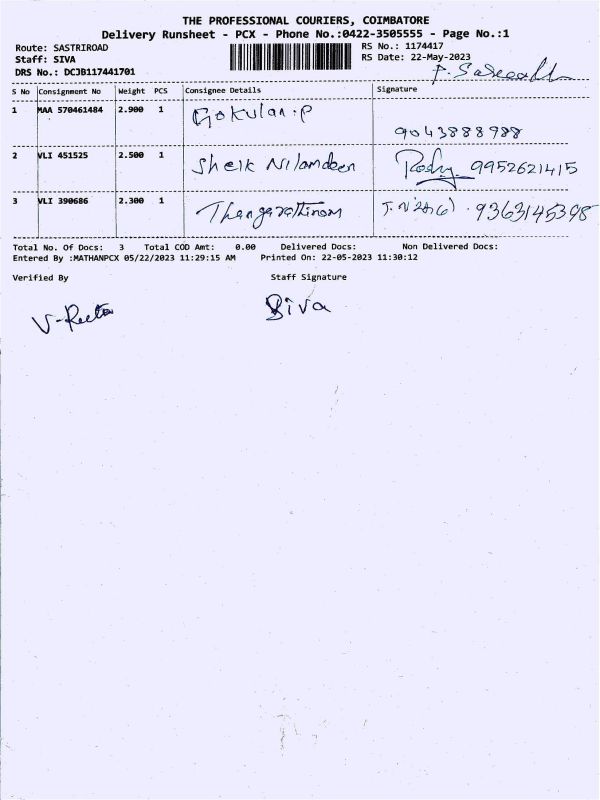 THE PROFESSIONAL COURIERS, COIMBATORE
Delivery Runsheet - PCX - Phone No.:0422-3505555 - Page No.:1
Route: SASTRIROAD RS No.: 1174417
Staff: SIVA RS Date: 22-May-2023
DRS No.: DCJB117441701
S No Consignment No Weight PCS Consignee Details Signature
1 MAA 570461484 2.900 1 Gokulan.P
9043888988
2 VLI 451525 2.500 1 Sheik Nilamdeen 9952621415
3 VLI 390686 2.300 1 Thangarathinam 9363145398
Total No. Of Docs: 3 Total COD Amt: 0.00 Delivered Docs: Non Delivered Docs:
Entered By :MATHANPCX 05/22/2023 11:29:15 AM Printed On: 22-05-2023 11:30:12
Verified By Staff Signature
Siva